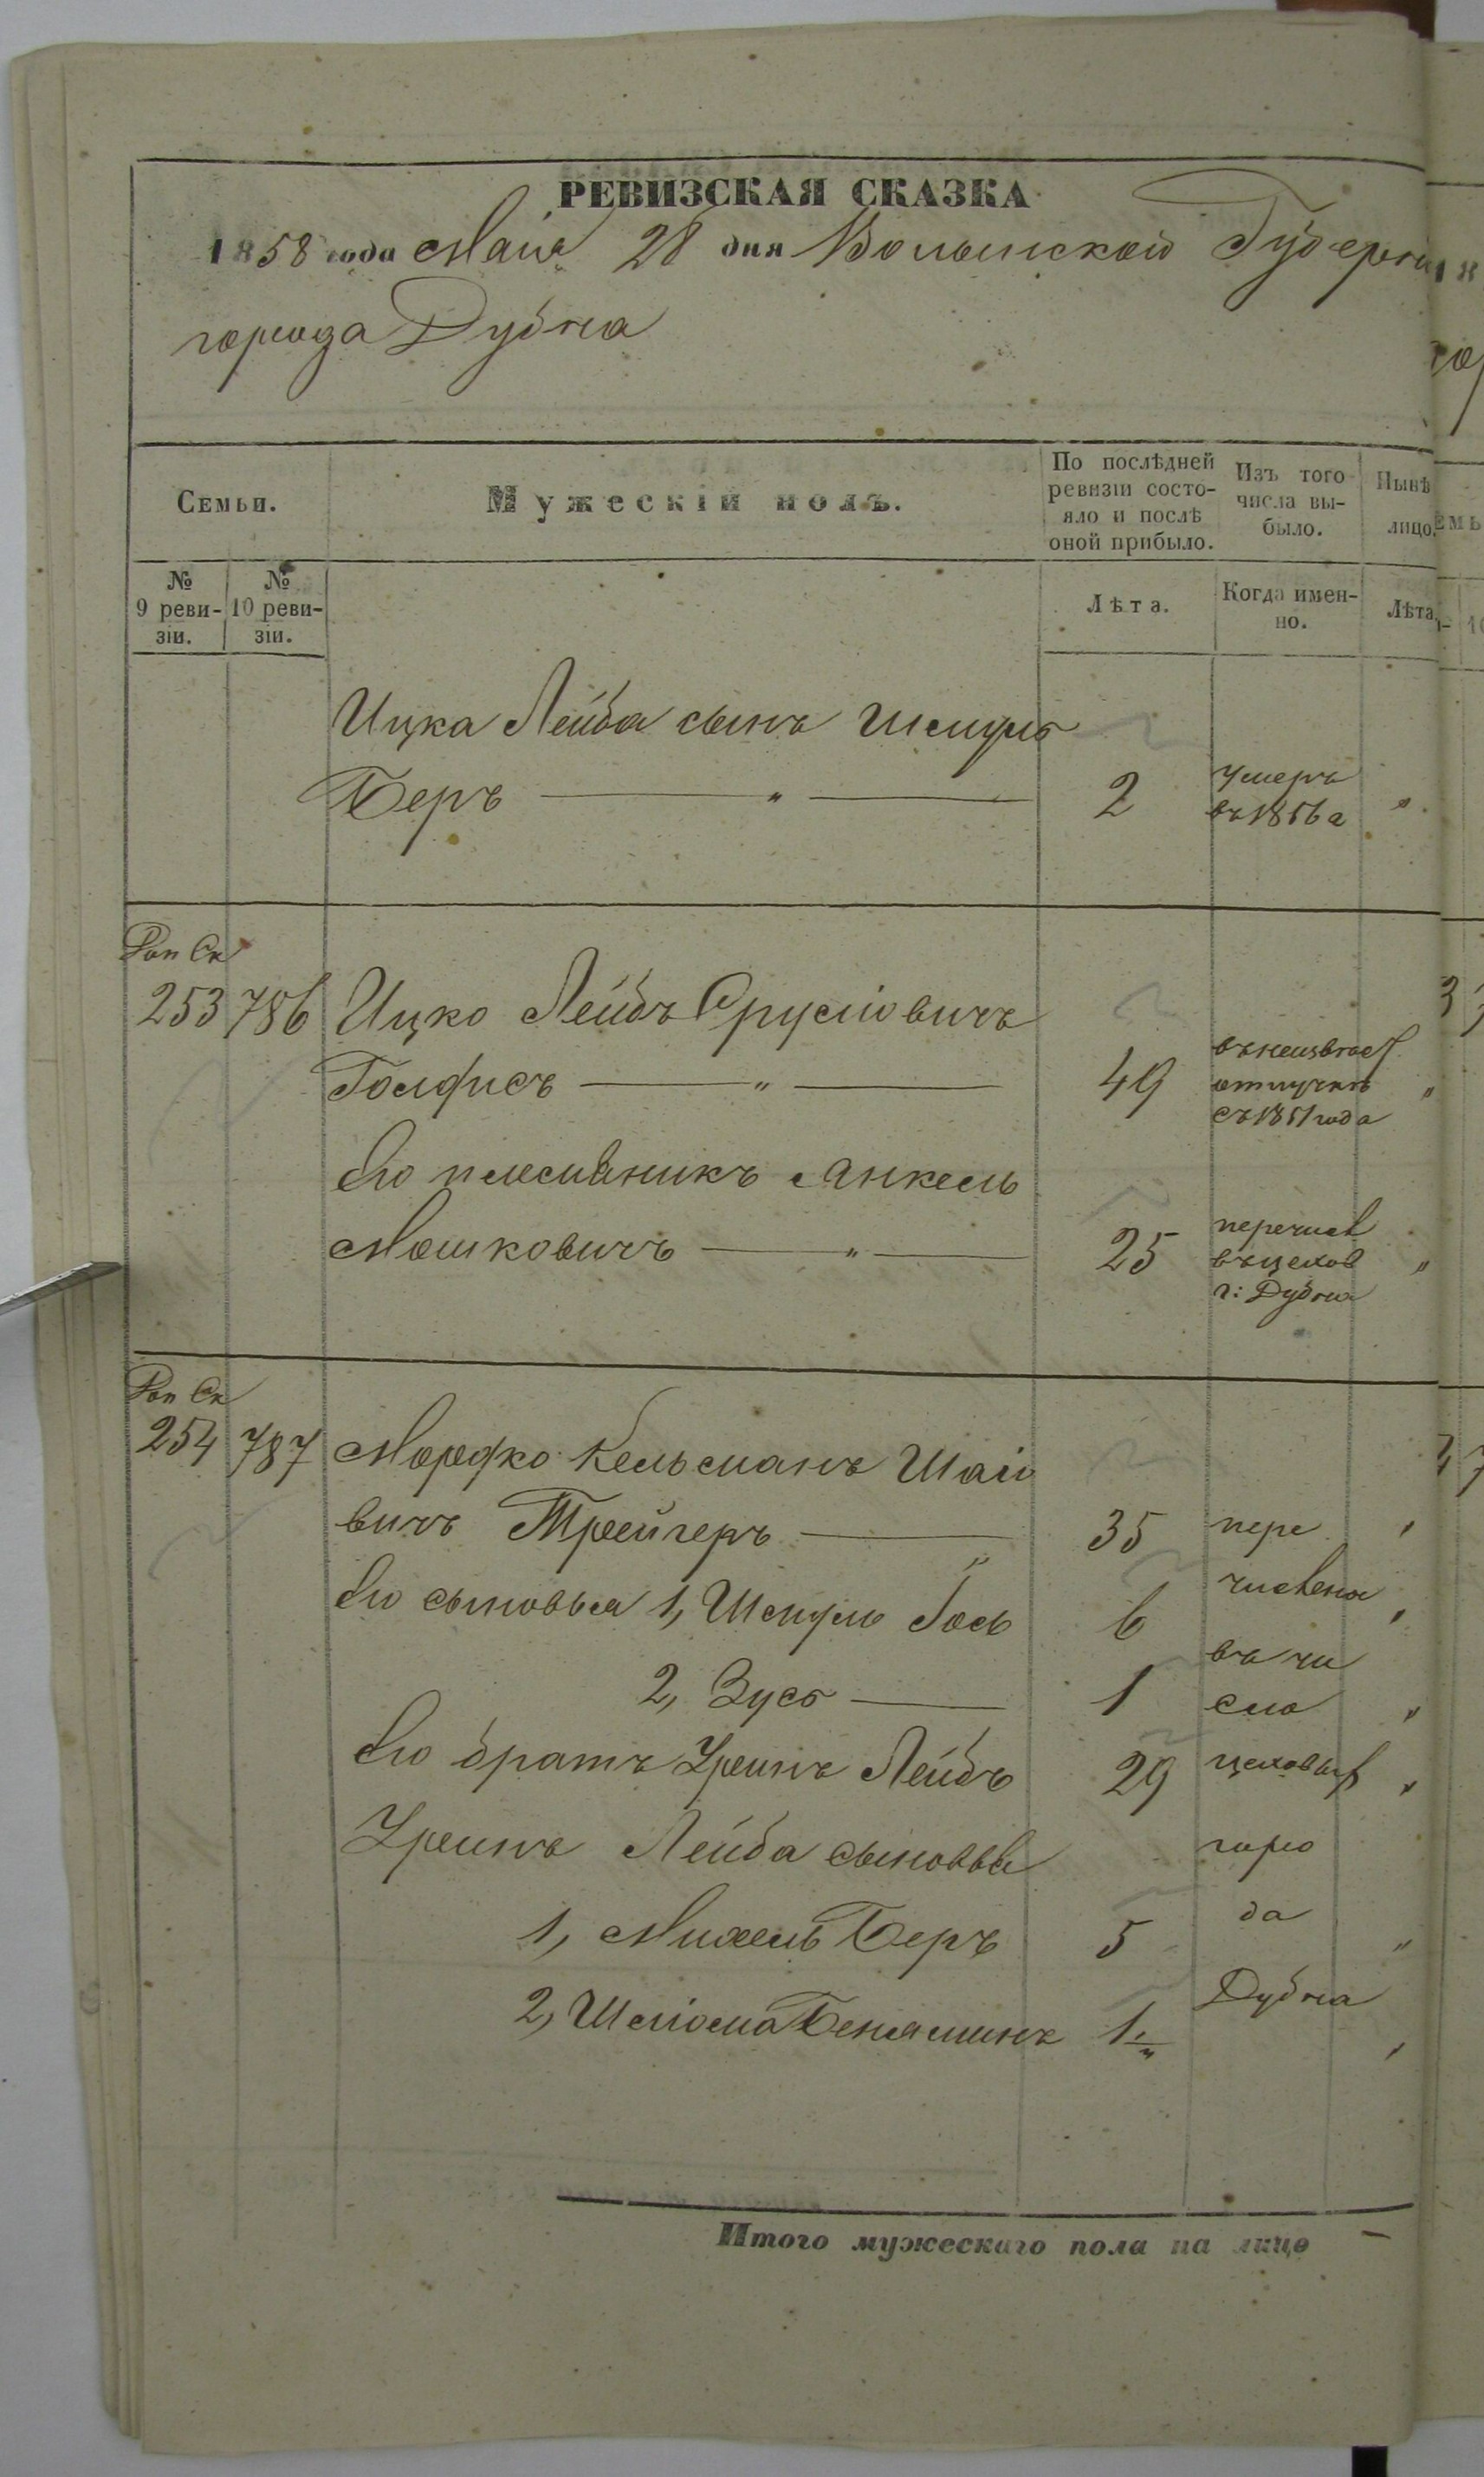 РЕВИЗСКАЯ СКАЗКА
1858 года Мая 28 дня Волынской Губерніи
города Дубна
Семьи.
Мужескій полъ.
По послѣдней ревизіи состо-
яло и послѣ
оной прибыло.
Изъ того
числа вы-
было.
Нынѣ
лицо.
№
9 реви-
зіи.
№
10 реви-
зіи.
Лѣта.
Когда имен-
но.
Лѣта
Ицка Лейба сынъ Шмуль
Беръ — " — 2 умеръ в 1856 г "
Рап Ск
253 786 Ицко Лейбъ Сруліовичъ
— " — 49 въ неизвѣст отлучкѣ съ 1851 года "
Его племянникъ Янкель
Мошковичъ — " — 25 перечисл въ цехов г: Дубна "
Рап Ск
254 787 Мордко Кельманъ Шаіо
вичъ Трейгеръ — " 35 пере
Его сыновья 1, Шмуль Іось 6 числены
2, Зусь — 1 въ чи
сло "
Его братъ Хреинъ Лейбъ 29 цеховых "
Хреинъ Лейба сыновья горо
1, Михель Беръ 5 да "
2, Шліома Беняминъ 1 Дубна
Итого мужескаго пола на лицо —